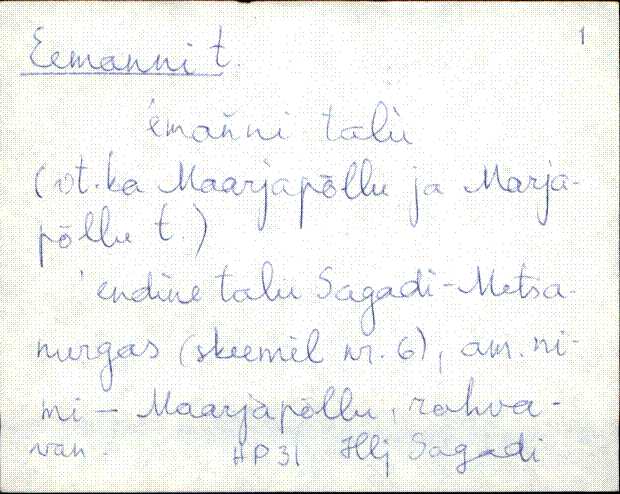 Eemanni t. 1
émaǹni talù
(vt. ka Maarjapõllu ja Marja-
põllu t.)
'endine talu Sagadi-Metsa-
nurgas (skeemil nr. 6), am. ni-
mi – Maarjapõllu, rahva-
van.
HP 31 Hlj Sagadi